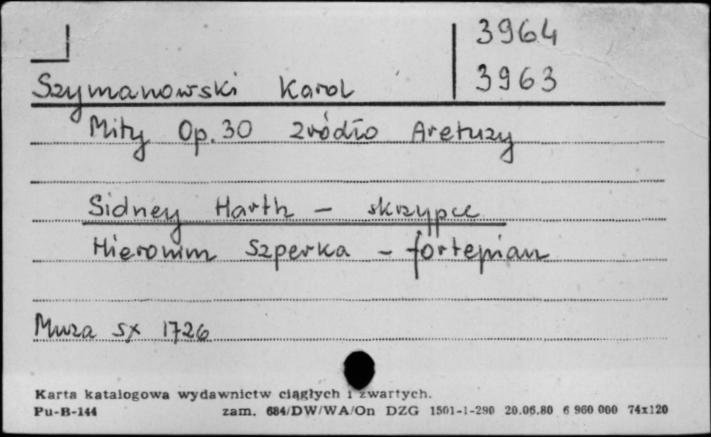 3964
3963
Szymanowski Karol
Mity Op.30 źródło Aretuzy
Sidney Harth - skrzypce
Hieronim Szperka - fortepian
Muza sx 1726
Karta katalogowa wydawnictw ciągłych i zwartych.
Pu-B-144 zam. 684/DW/WA/On DZG 1501-1-290 20.06.80 6 960 000 74x120